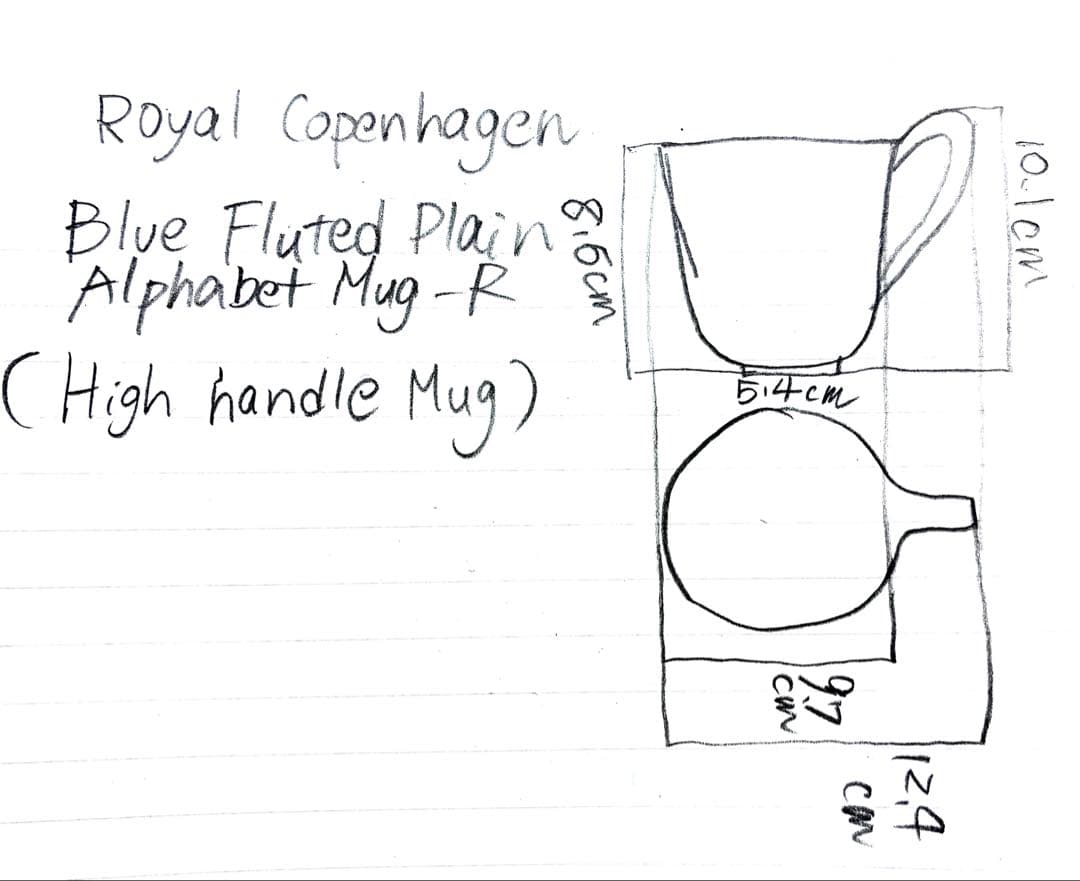 Royal Copenhagen
Blue Fluted Plain
Alphabet Mug-R
(High handle Mug)
8.6cm
10.1cm
5.4cm
9.7
cm
12.4
cm